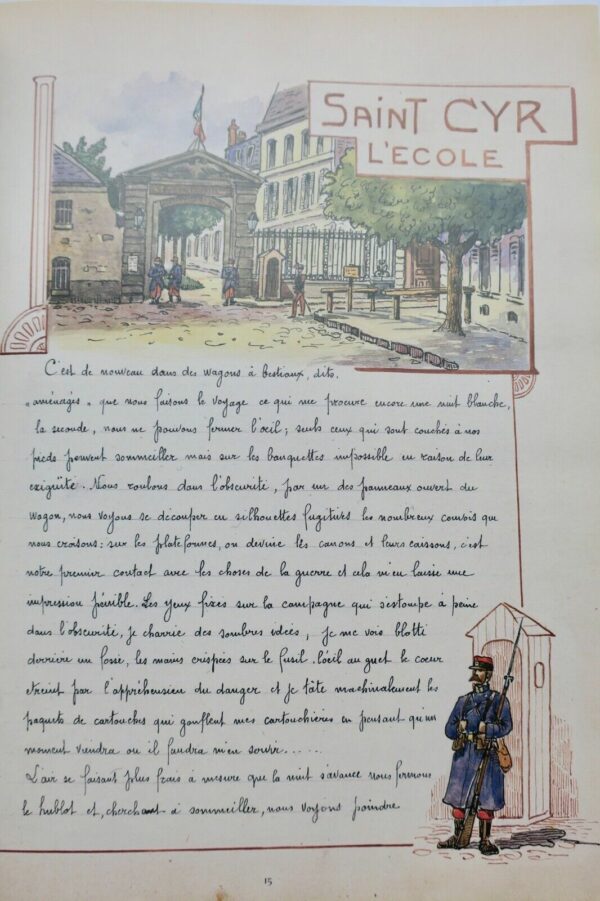 SAINT CYR
L'ECOLE
C'est de nouveau dans des wagons à bestiaux, dits,
"aménagés" que nous faisons le voyage ce qui me procure encore une nuit blanche,
la seconde, nous ne pouvons fermer l'œil; seuls ceux qui sont couchés à nos
pieds peuvent sommeiller mais sur les banquettes impossible en raison de leur
exigüité. Nous roulons dans l'obscurité, par un des panneaux ouvert du
wagon, nous voyons se découper en silhouettes fugitives les nombreux convois que
nous croisons: sur les plateformes, on devine les canons et leurs caissons, c'est
notre premier contact avec les choses de la guerre et cela m'en laisse une
impression pénible. Les yeux fixés sur la campagne qui s'estompe à peine
dans l'obscurité, je charrie des sombres idées, je me vois blotti
derrière un fossé, les mains crispées sur le fusil. l'œil au guet le cœur
étreint par l'appréhension du danger et je tâte machinalement les
paquets de cartouches qui gonflent mes cartouchières en pensant qu'un
moment viendra ou il faudra m'en servir.....
L'air se faisant plus frais à mesure que la nuit s'avance nous fermons
le hublot et, cherchant à sommeiller, nous voyons poindre
15